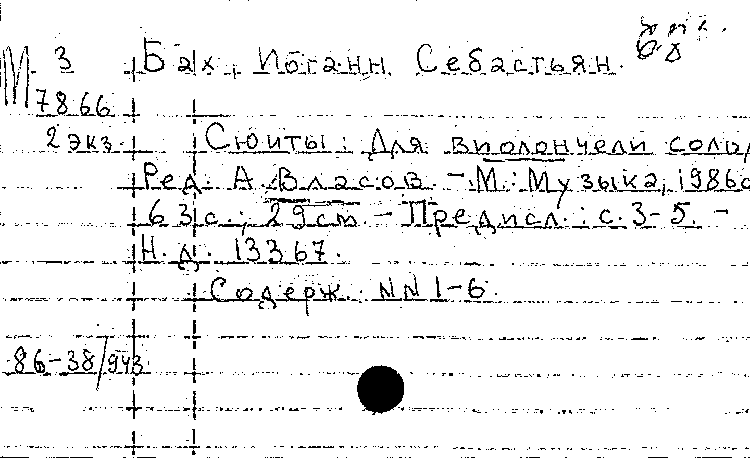 М 3 Бах, Иоганн Себастьян.
7866
2 экз. Сюиты: Для виолончели соло/
Ред. А. Власов. – М.: Музыка, 1986
63 с.; 29 см. – Предисл.: с. 3-5. –
Н. д. 13367.
Содерж.: NN 1-6.
86-38/943